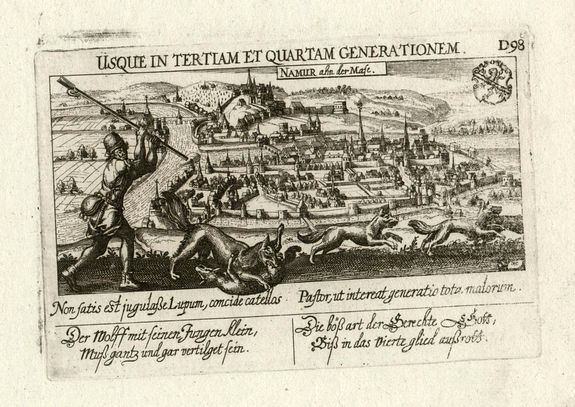 USQUE IN TERTIAM ET QUARTAM GENERATIONEM.
D98
NAMUR ahn der Mase.
Non satis est jugulaße Lupum, concide catellos
Pastor, ut intereat generatio tota malorum.
Der Wolff mit seinen Jungen klein,
Muß gantz und gar vertilget sein.
Die böß art der Gerechte Gott,
Biß in das Vierte glied außrott.